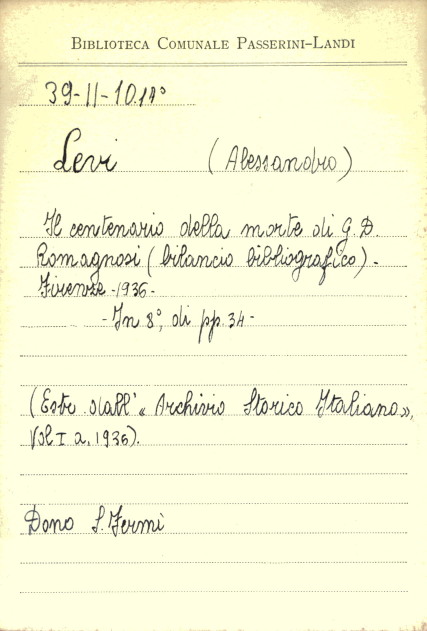 BIBLIOTECA COMUNALE PASSERINI-LANDI
39-II-10.14°
Levi (Alessandro)
Il centenario della morte di G. D.
Romagnosi (bilancio bibliografico) -
Firenze -1936-
- In 8°, di pp. 34 -
(Estr. dall' « Archivio Storico Italiano »,
Vol I a, 1936).
Dono S. Fermi